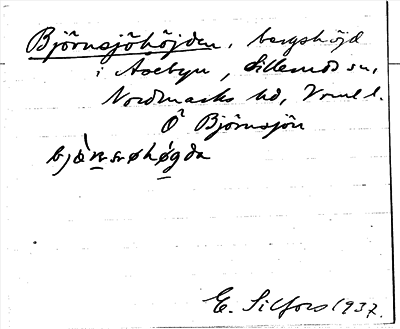 Björnsjöhöjden, bergshöjd
i Åsebyn, Sillemods sn,
Nordmarks hd, Vrml l.
Ö Björnsjön
bjæ̀n sø høgda
E. Silfors 1937.